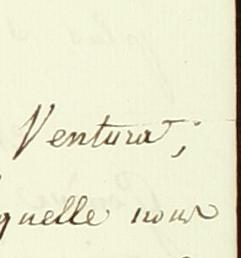 Ventura;
quelle nous